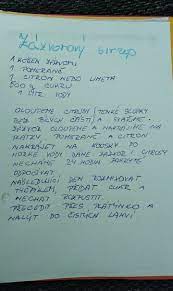 Zázvorový sirup
1 KOŘEN ZÁZVORU
1 POMERANČ
1 CITRON NEBO LIMETA
800 g CUKRU
1 LITR VODY
OLOUPEME CITRUSY (TENKÉ SLUPKY
BEZ BÍLÝCH ČÁSTÍ) A
ZÁZVOR OLOUPEME A NAKRÁJÍME NA
PLÁTKY. POMERANČ A CITRON
NAKRÁJET NA KOUSKY DO
HORKÉ VODY DÁME ZÁZVOR I CITRUSY
NECHÁME 24 HODIN POKRYTÉ
ODPOČÍVAT.
NÁSLEDUJÍCÍ DEN ROZMIXOVAT
PŘIDAT CUKR A
NECHAT ROZPUSTIT.
PŘECEDIT PŘES PLÁTÝNKO A
NALÍT DO ČISTÝCH LAHVÍ